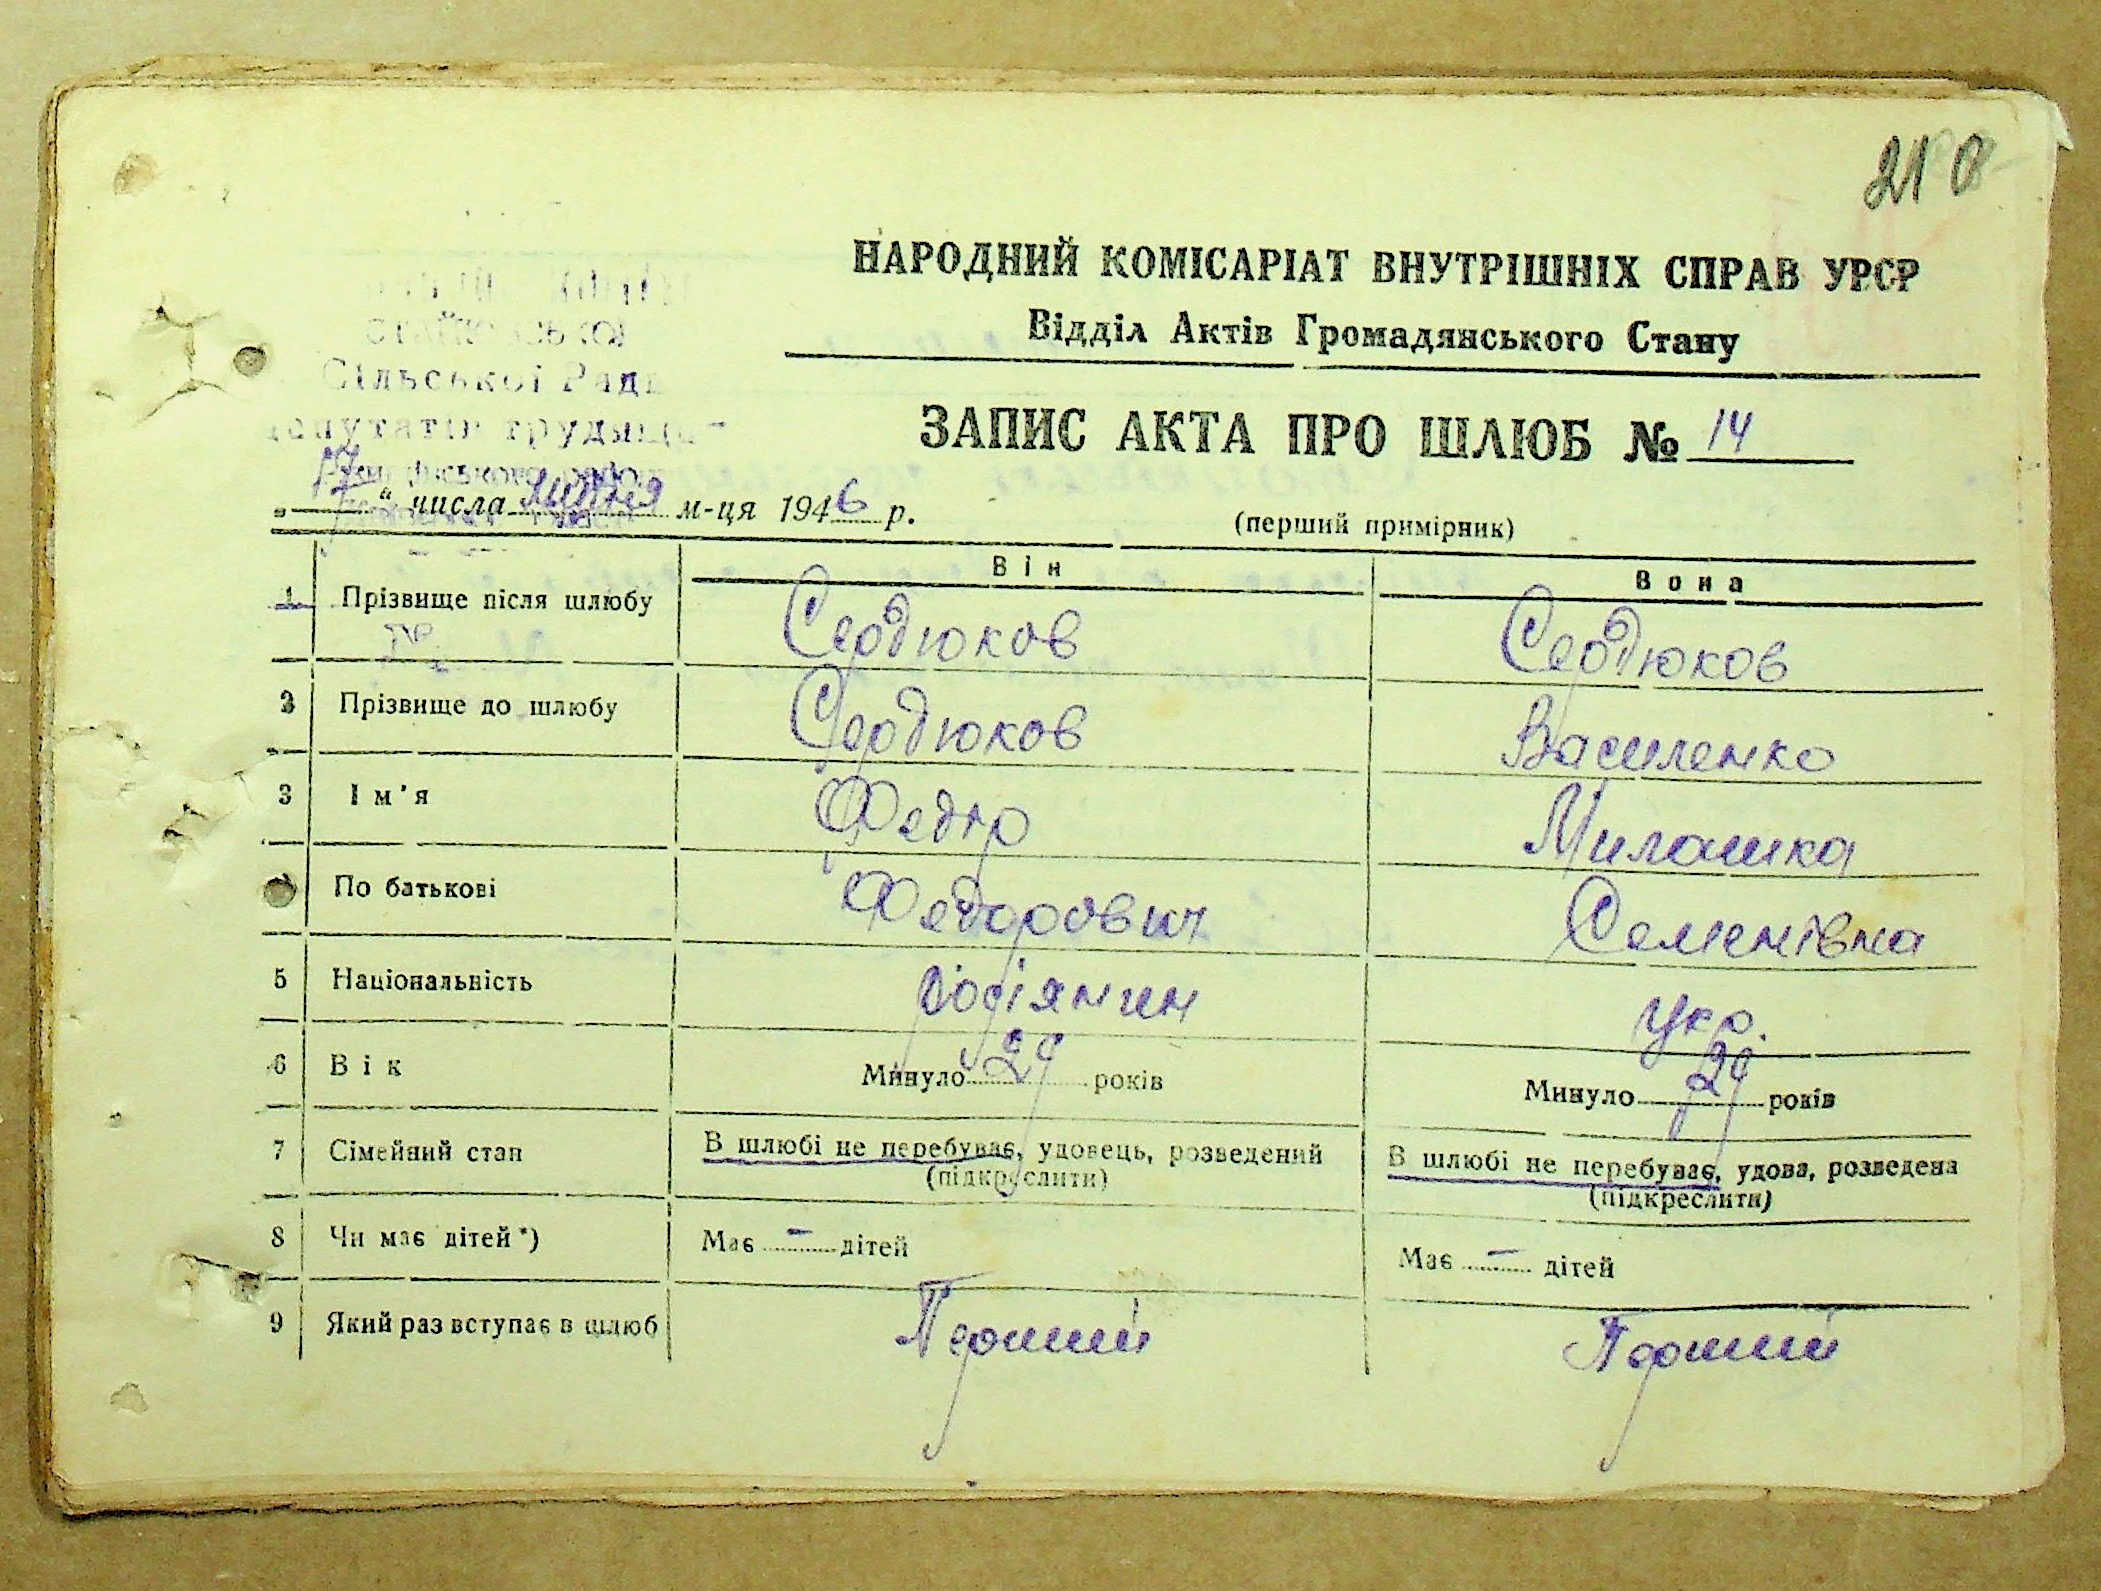 210
НАРОДНИЙ КОМІСАРІАТ ВНУТРІШНІХ СПРАВ УРСР
Відділ Актів Громадянського Стану
Сільської Ради
депутатів трудящих
ЗАПИС АКТА ПРО ШЛЮБ № 14
„17“ числа липня м-ця 1946 р.
(перший примірник)
Він Вона
1 Прізвище після шлюбу Сердюков Сердюков
2 Прізвище до шлюбу Сердюков Василенко
3 Ім'я Федір Милашка
По батькові Федорович Семенівна
5 Національність росіянин укр.
6 Вік Минуло 29 років Минуло 29 років
7 Сімейний стан В шлюбі не перебуває, удовець, розведений В шлюбі не перебуває, удова, розведена
(підкреслити) (підкреслити)
8 Чи має дітей*) Має – дітей Має – дітей
9 Який раз вступає в шлюб Перший Перший